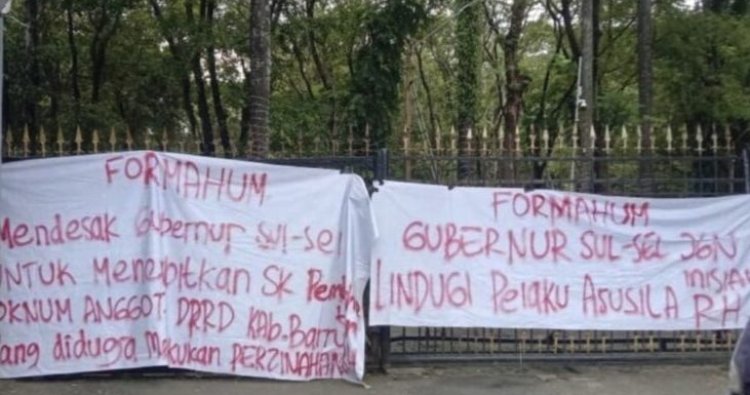 FORMAHUM
Mendesak Gubernur Sul-Sel
UNTUK Menerbitkan SK
OKNUM ANGGOT. DPRD KAB. Barru
Yang diduga Melakukan PERZINAHAN
FORMAHUM
GUBERNUR SUL-SEL JGN
LINDUGI Pelaku ASUSILA INISIAL
RH